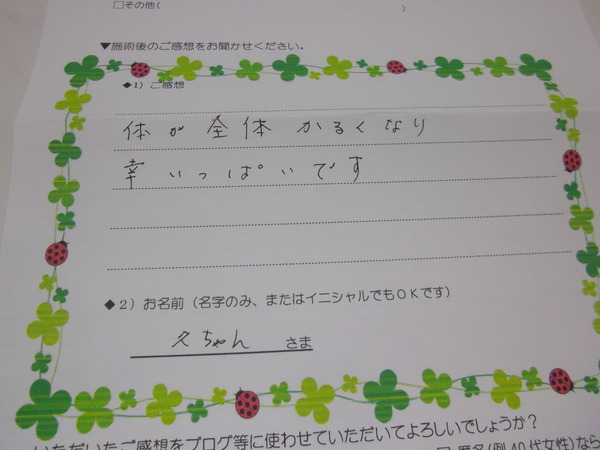 □その他(　　　)
▼施術後のご感想をお聞かせください。
◆1）ご感想
体が全体かるくなり
幸いっぱいです
◆2）お名前（名字のみ、またはイニシャルでもOKです）
久ちゃん　さま
いただいたご感想をブログ等に使わせていただいてよろしいでしょうか？
□ 匿名(例40代女性)なら